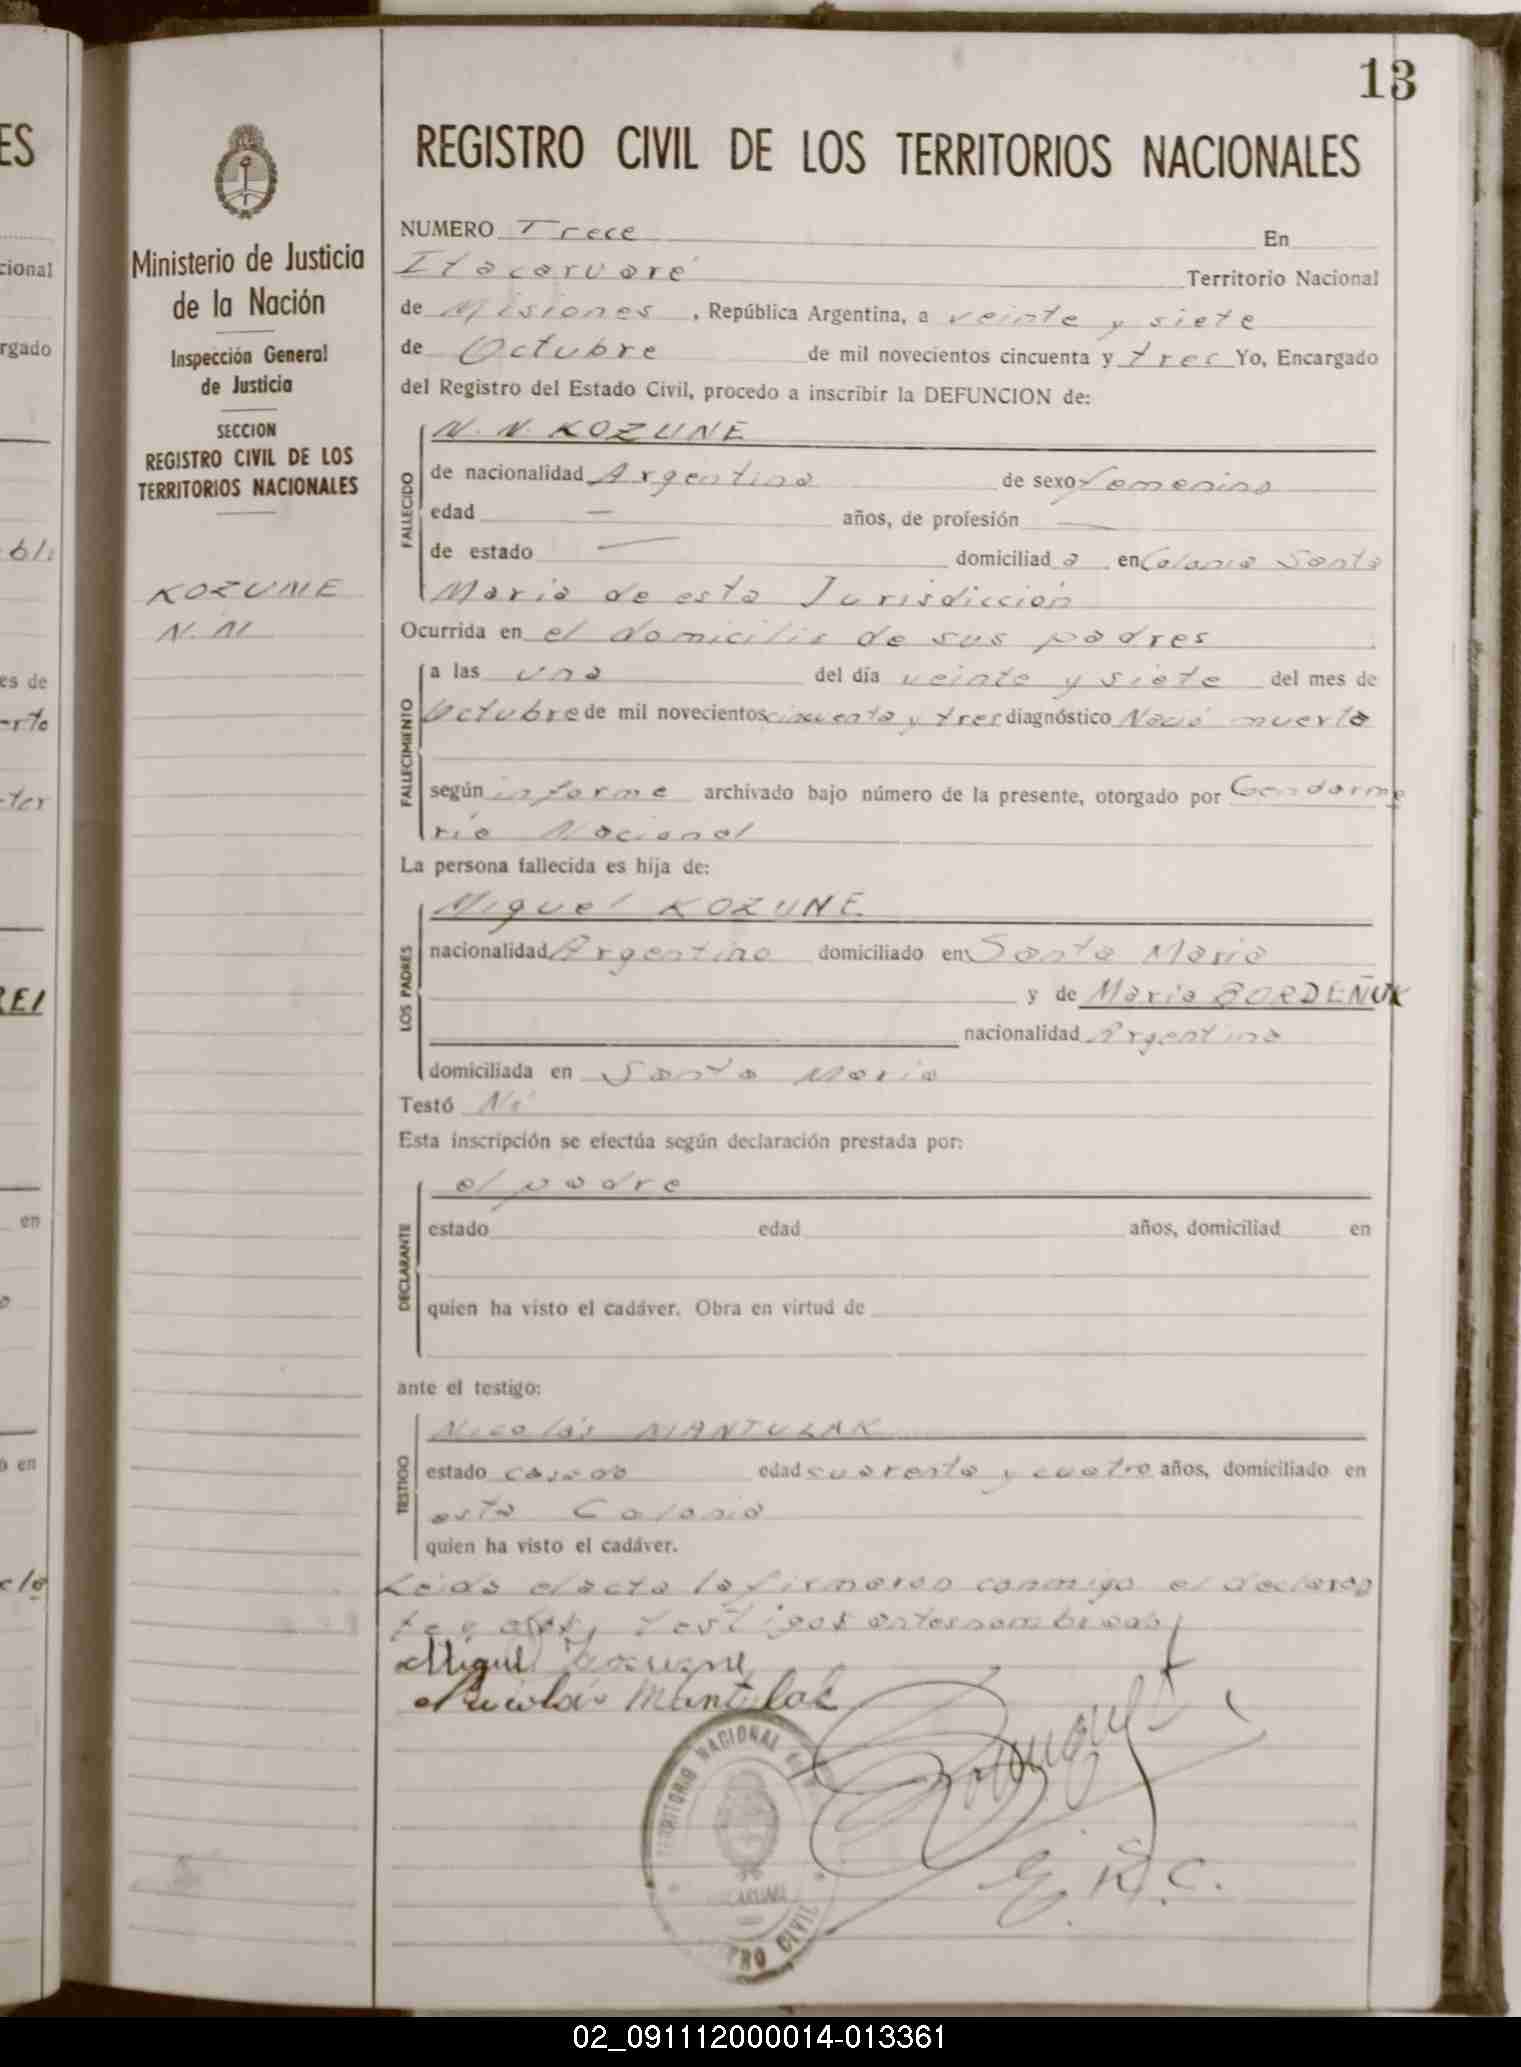 13
REGISTRO CIVIL DE LOS TERRITORIOS NACIONALES
Ministerio de Justicia
de la Nación
Inspección General
de Justicia
SECCION
REGISTRO CIVIL DE LOS
TERRITORIOS NACIONALES
KOZUNE
N. N
NUMERO Trece En
Itacaruaré Territorio Nacional
de Misiones, República Argentina, a veinte y siete
de Octubre de mil novecientos cincuenta y tres Yo, Encargado
del Registro del Estado Civil, procedo a inscribir la DEFUNCION de:
N. N. KOZUNE
FALLECIDO
de nacionalidad Argentina de sexo femenino
edad — años, de profesión —
de estado — domiciliad a en Colonia Santa
Maria de esta Jurisdicción
Ocurrida en el domicilio de sus padres
FALLECIMIENTO
a las una del día veinte y siete del mes de
Octubre de mil novecientos cincuenta y tres diagnóstico Nació muerta
según informe archivado bajo número de la presente, otorgado por Gendarme
ria Nacional
La persona fallecida es hija de:
LOS PADRES
Miguel KOZUNE
nacionalidad Argentino domiciliado en Santa Maria
y de Maria BORDEÑUK
nacionalidad Argentina
domiciliada en Santa Maria
Testó No
Esta inscripción se efectúa según declaración prestada por:
DECLARANTE
el padre
estado edad años, domiciliad en
quien ha visto el cadáver. Obra en virtud de
ante el testigo:
TESTIGO
Nicolás MANTULAK
estado casado edad cuarenta y cuatro años, domiciliado en
esta Colonia
quien ha visto el cadáver.
Leida el acta la firmaron conmigo el declaran
te y testigos antesnombrados
Miguel Kozuzne
Nicolás Mantulak
TERRITORIO NACIONAL
REGISTRO CIVIL
E. R. C.
02_091112000014-013361